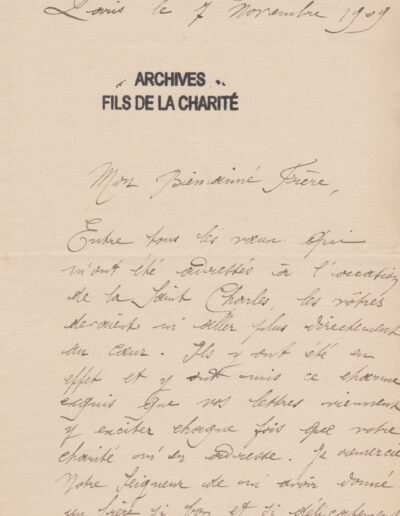 Paris le 7 Novembre 1909
ARCHIVES
FILS DE LA CHARITÉ
Mon Bienaimé Frère,
Entre tous les vœux qui
m'ont été adressés à l'occasion
de la Saint Charles, les vôtres
devaient m'aller plus directement
au cœur. Ils y ont été en
effet et y ont mis ce charme
exquis que vos lettres viennent
y exciter chaque fois que votre
charité m'en adresse. Je remercie
Notre Seigneur de m'avoir donné
un frère si bon et si délicatement